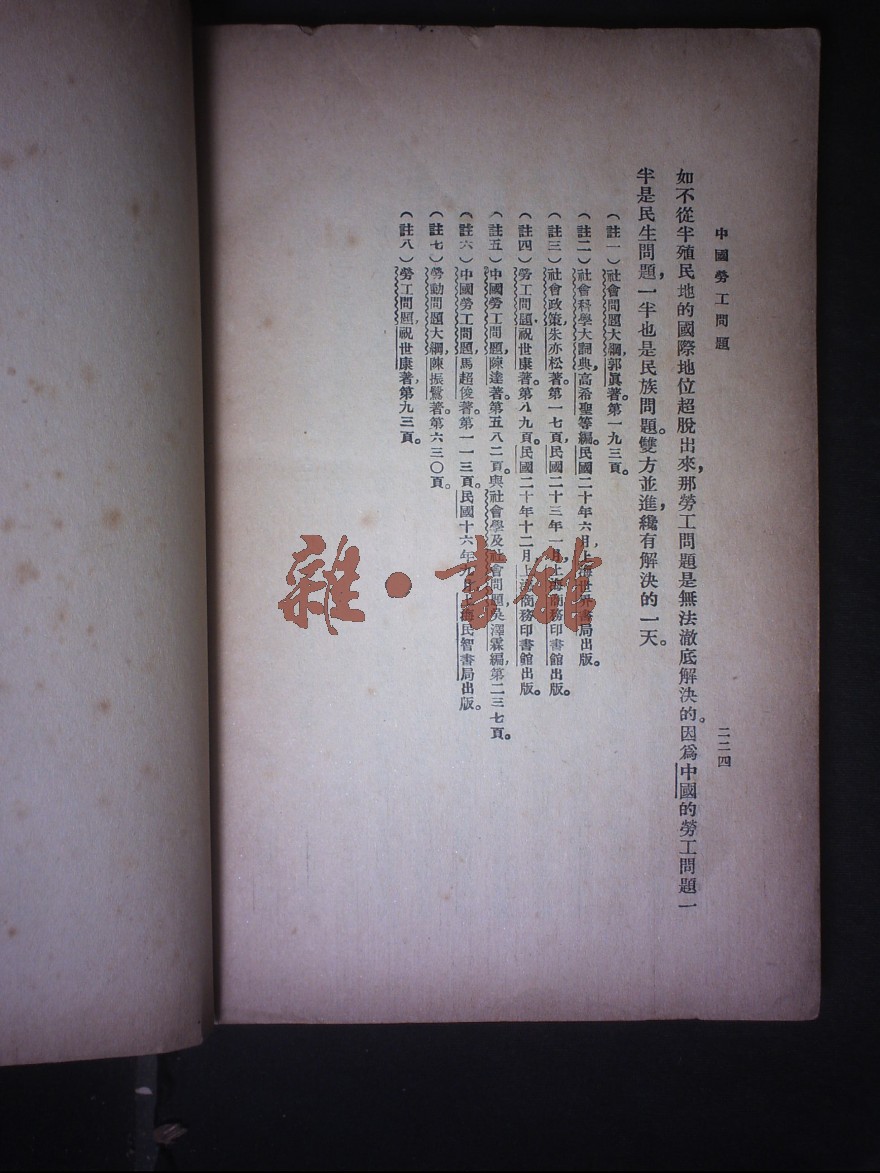 中國勞工問題
二二四
如不從半殖民地的國際地位超脫出來，那勞工問題是無法澈底解決的。因爲中國的勞工問題一
半是民生問題，一半也是民族問題。雙方並進，纔有解決的一天。
（註一）社會問題大綱，郭眞著。第一九三頁。
（註二）社會科學大詞典，高希聖等編。民國二十年六月上海世界書局出版。
（註三）社會政策，朱亦松著。第一七頁，民國二十三年一月上海商務印書館出版。
（註四）勞工問題，祝世康著。第八九頁。民國二十年十二月上海商務印書館出版。
（註五）中國勞工問題，陳達著。第五八二頁。與社會學及社會問題，吳澤霖編，第二三七頁。
（註六）中國勞工問題，馬超俊著。第一一三頁。民國十六年九月上海民智書局出版。
（註七）勞動問題大綱，陳振鷺著。第六三〇頁。
（註八）勞工問題，祝世康著，第九三頁。
雜·書館